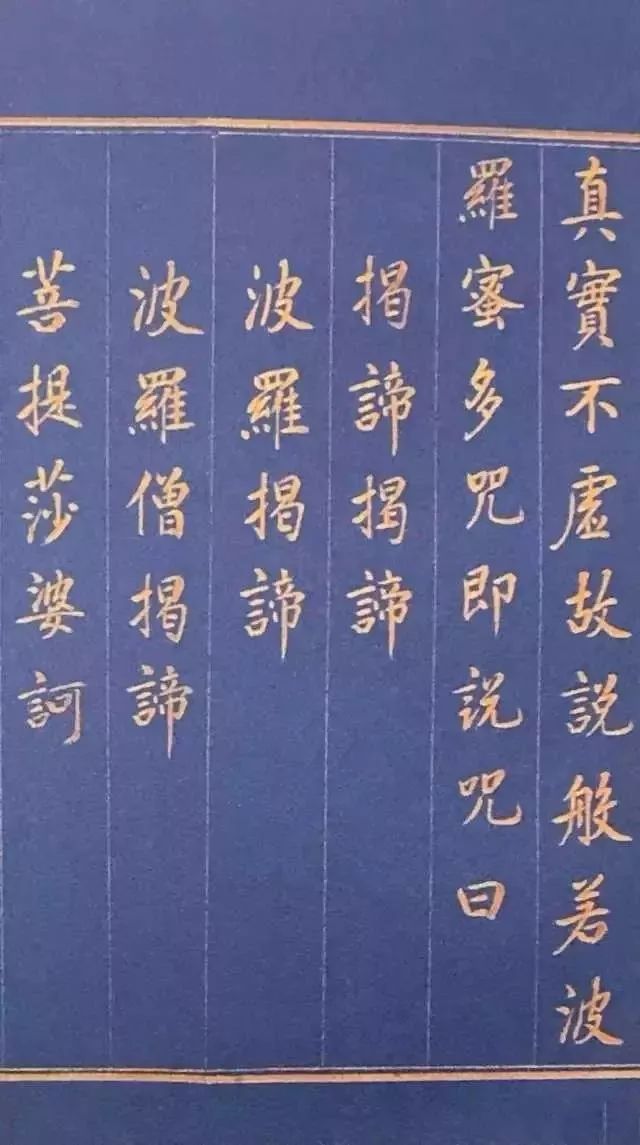 真實不虛故說般若波
羅蜜多咒即說咒曰
揭諦揭諦
波羅揭諦
波羅僧揭諦
菩提莎婆訶